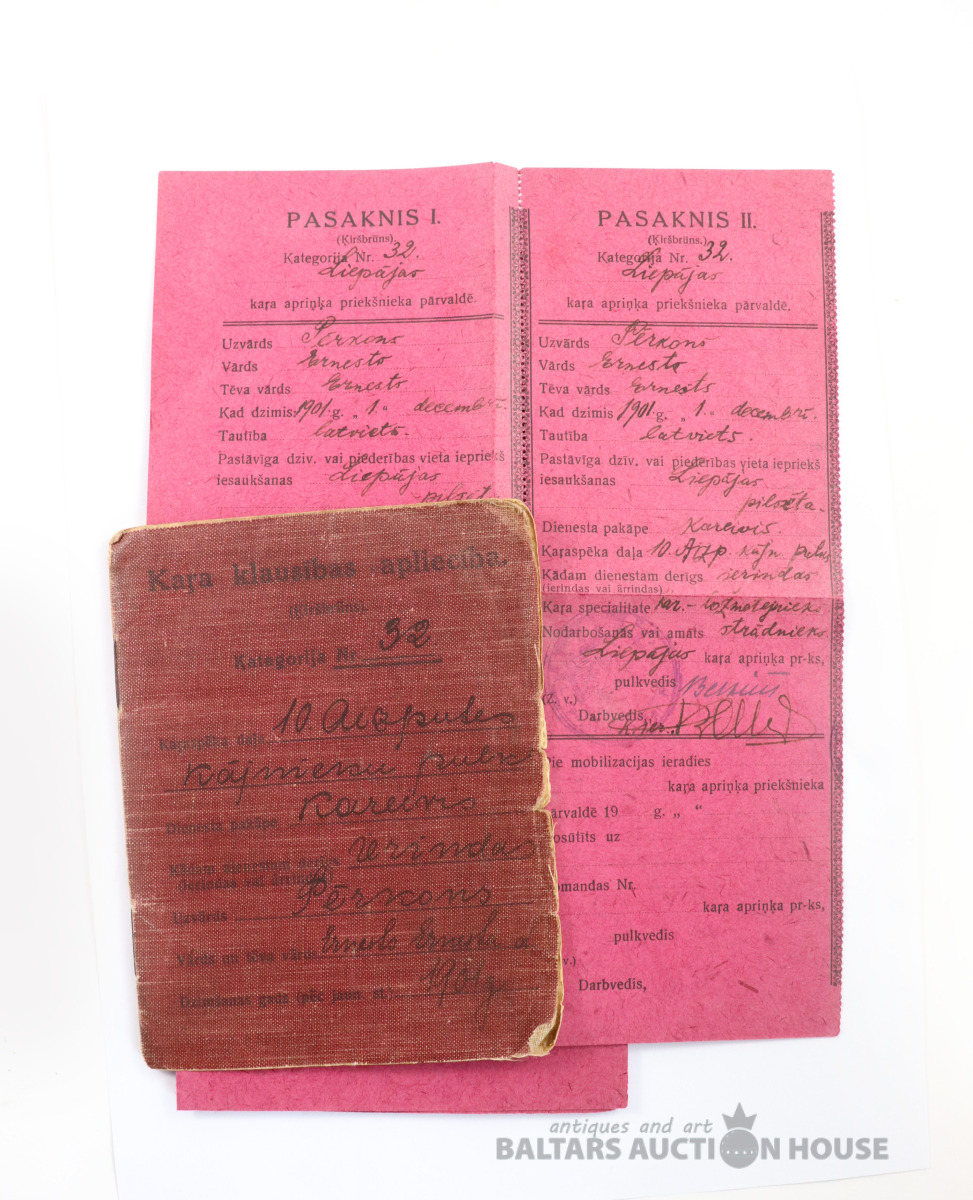 PASAKNIS I.
(Ķiršbrūns)
Kategorija Nr. 32.
Liepājas
kaŗa apriņķa priekšnieka pārvaldē.
Uzvārds Pērkons
Vārds Ernests
Tēva vārds Ernests
Kad dzimis 1901.g. „ 1. “ decembrī.
Tautība latvietis.
Pastāvīga dziv. vai piederības vieta iepriekš
iesaukšanas Liepājas
pilsēt
PASAKNIS II.
(Ķiršbrūns.)
Kategorija Nr. 32.
Liepājas
kaŗa apriņķa priekšnieka pārvaldē.
Uzvārds Pērkons
Vārds Ernests
Tēva vārds Ernests
Kad dzimis 1901.g. „ 1. “ decembrī.
Tautība latviets.
Pastāvīga dzīv. vai piederības vieta iepriekš
iesaukšanas Liepājas
pilsēta.
Dienesta pakāpe Kareivis.
Kaŗaspēka daļa 10. Aizp. kājn. pulks
Kādam dienestam derīgs ierindas
(ierindas vai ārrindas)
Kaŗa specialitate kar.- ložmetējnieks
Nodarbošanās vai amats strādnieks
Liepājas kaŗa apriņķa pr-ks,
pulkvedis
(Z. v.)
Darbvedis,
Pie mobilizacijas ieradies
kaŗa apriņķa priekšnieka
ārvaldē 19 g. „ “
osūtīts uz
omandas Nr.
kaŗa apriņķa pr-ks,
pulkvedis
v.)
Darbvedis,
Kaŗa klausības apliecība.
(Ķiršbrūns).
Kategorija Nr. 32
Kaŗaspēka daļa 10 Aizputes
Kājnieku pulks
Dienesta pakāpe Kareivis
Kādam dienestam derīgs ierindas
(ierindas vai ārrindas)
Uzvārds Pērkons
Vārds un tēva vārds Ernests Ernesta d.
Dzimšanas gads (pēc jaun. st.) 1901 g.
antiques and art
BALTARS AUCTION HOUSE